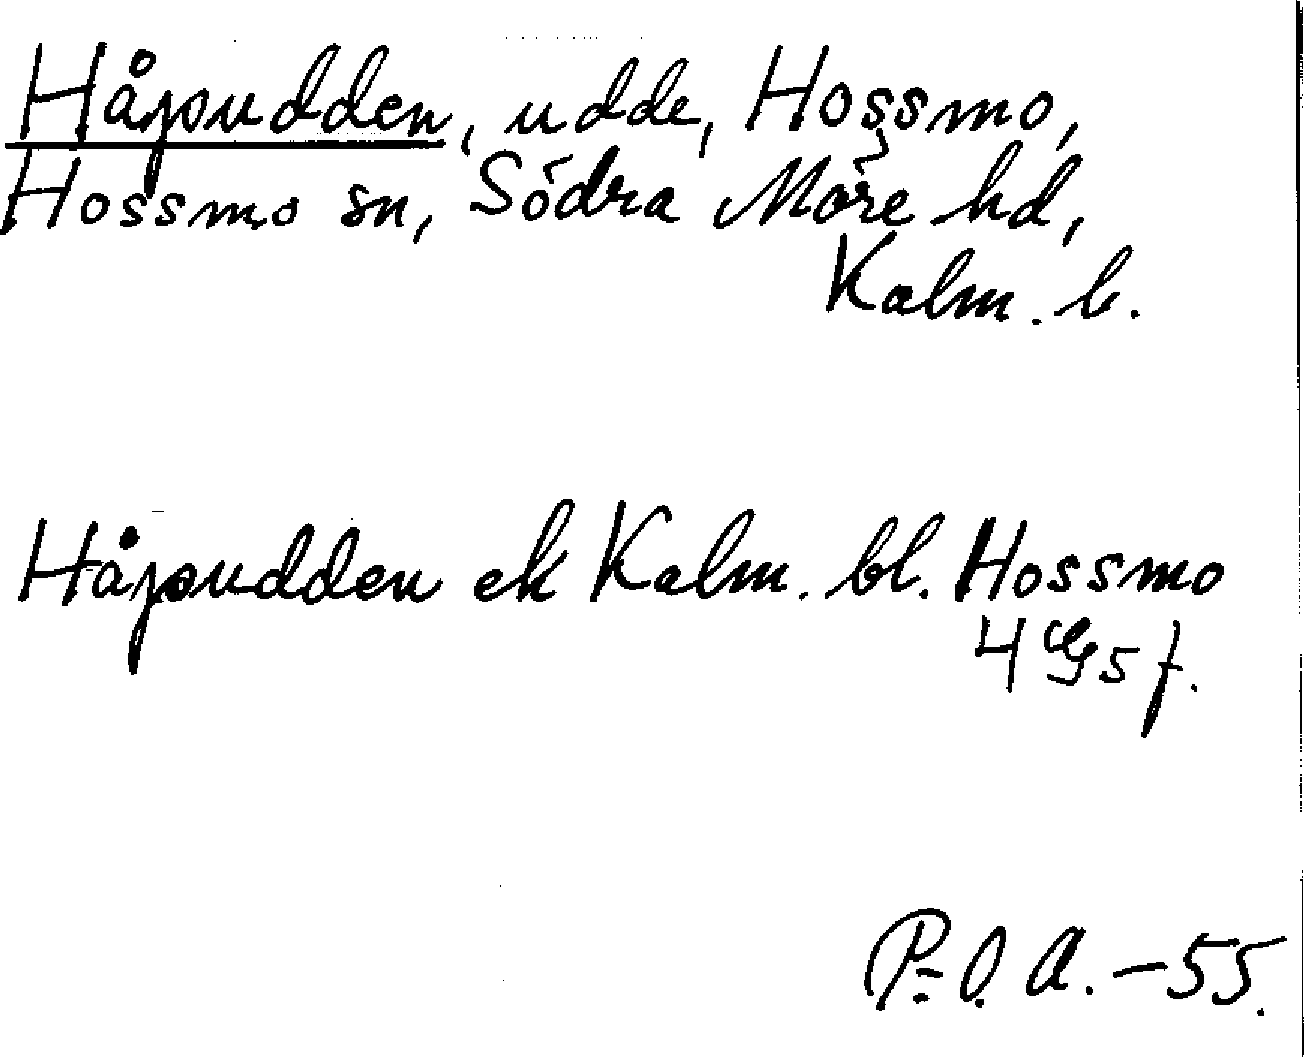 Håpudden, udde, Hossmo,
Hossmo sn, Södra Möre hd,
Kalm. l.
Håpudden ek Kalm. bl. Hossmo
4 G5 f.
P.-O. A. – 55.